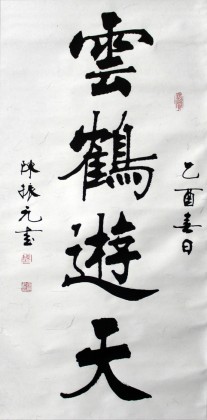 乙酉春日
雲鶴遊天
陳振元書